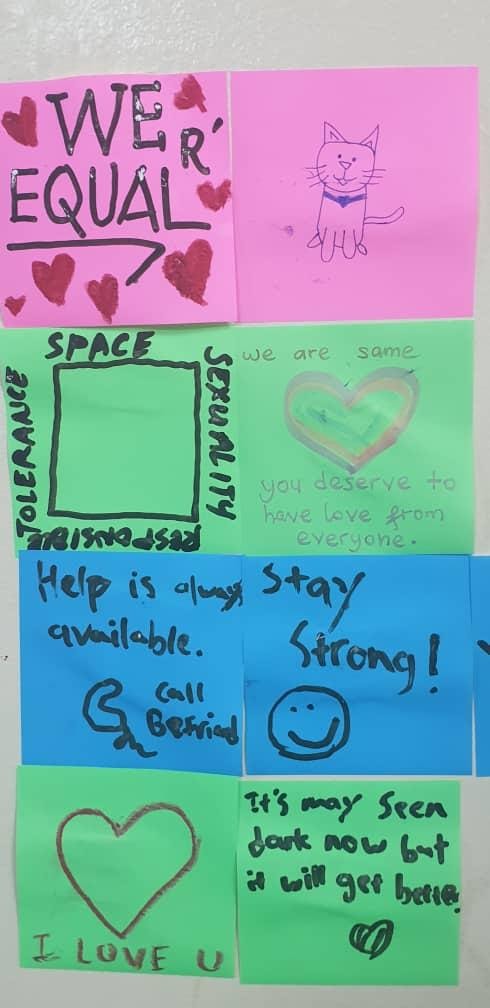 WE R'
EQUAL
SPACE
SEXUALITY
TOLERANCE
RESPONSIBLE
we are same
you deserve to
have love from
everyone.
Help is always
available.
Call
Befriend
Stay
Strong!
I LOVE U
It's may seen
dark now but
it will get better